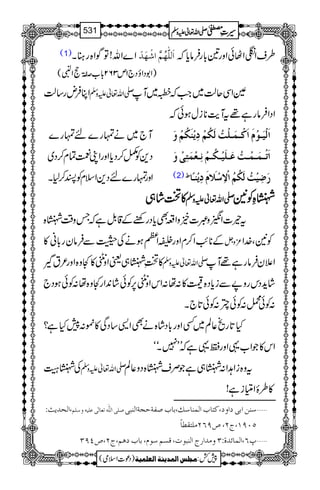 سیرتِ مصطفی صلی اللہ تعالیٰ علیہ وسلم
531
طرف انگلی اٹھائی اور تین بار فرمایا کہ اَللّٰھُمَّ اشْھَدْ اے اللہ! تو گواہ رہنا۔(1)
(ابوداؤد ج۱ص۲۶۳ باب صفۃ حج النبی)
عین اسی حالت میں جب کہ خطبہ میں آپ صلی اللہ تعالیٰ علیہ وسلم اپنا فرض رسالت
ادا فرما رہے تھے یہ آیت نازل ہوئی کہ
اَلْیَوْمَ اَکْمَلْتُ لَکُمْ دِیْنَکُمْ وَ
اَتْمَمْتُ عَلَیْکُمْ نِعْمَتِیْ وَ
رَضِیْتُ لَکُمُ الْاِسْلَامَ دِیْنًا (2)
آج میں نے تمہارے لئے تمہارے
دین کو مکمل کر دیا اور اپنی نعمت تمام کردی
اور تمہارے لئے دین اسلام کو پسند کر لیا۔
شہنشاہِ کونین صلی اللہ تعالیٰ علیہ وسلم کا تخت شاہی
یہ حیرت انگیز و عبرت خیز واقعہ بھی یاد رکھنے کے قابل ہے کہ جس وقت شہنشاہ
کونین، خدا عزوجل کے نائب اکرم اور خلیفہ اعظم ہونے کی حیثیت سے فرمان ربانی کا
اعلان فرما رہے تھے آپ صلی اللہ تعالیٰ علیہ وسلم کا تخت شہنشاہی یعنی اونٹنی کا کجاوہ اور عرق گیر
شاید دس روپے سے زیادہ قیمت کا نہ تھا نہ اس اونٹنی پر کوئی شاندار کجاوہ تھا نہ کوئی ہودج
نہ کوئی محمل نہ کوئی چتر نہ کوئی تاج۔
کیا تاریخ عالم میں کسی اور بادشاہ نے بھی ایسی سادگی کا نمونہ پیش کیا ہے؟
اس کا جواب یہی اور فقط یہی ہے کہ ’’نہیں۔‘‘
یہ وہ زاہدانہ شہنشاہی ہے جو صرف شہنشاہ دو عالم صلی اللہ تعالیٰ علیہ وسلم کی شہنشاہیت
کا طرۂ امتیاز ہے!
سنن ابی داود، کتاب المناسک، باب صفۃ حجۃ النبی صلی اللہ تعالی علیہ وسلم، الحدیث:
۱۹۰۵، ج۲، ص۲۶۹ ملتقطاً
پ۶، المائدۃ:۳ ومدارج النبوت، قسم سوم، باب دھم، ج۲، ص۳۹۴
پیش کش: مجلس المدینۃ العلمیۃ (دعوتِ اسلامی)